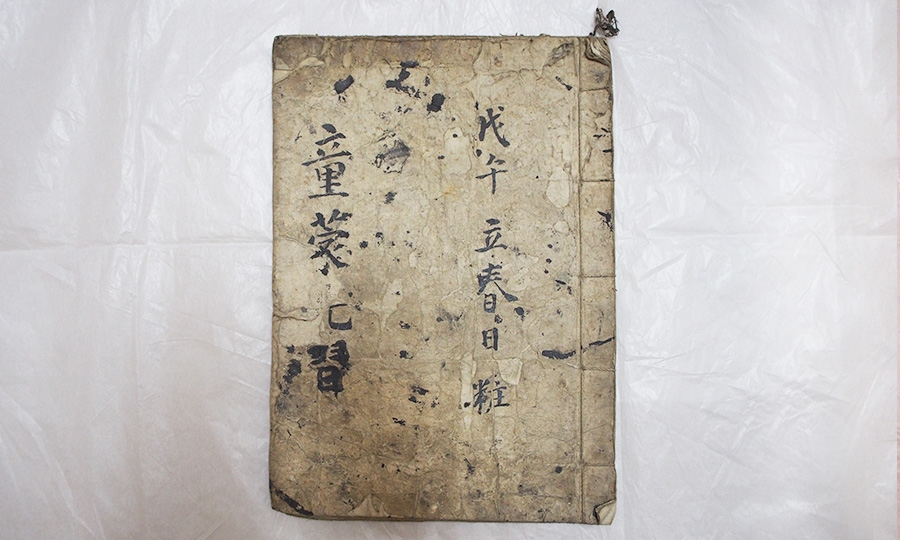 戊午 立春日 粧
童蒙 習